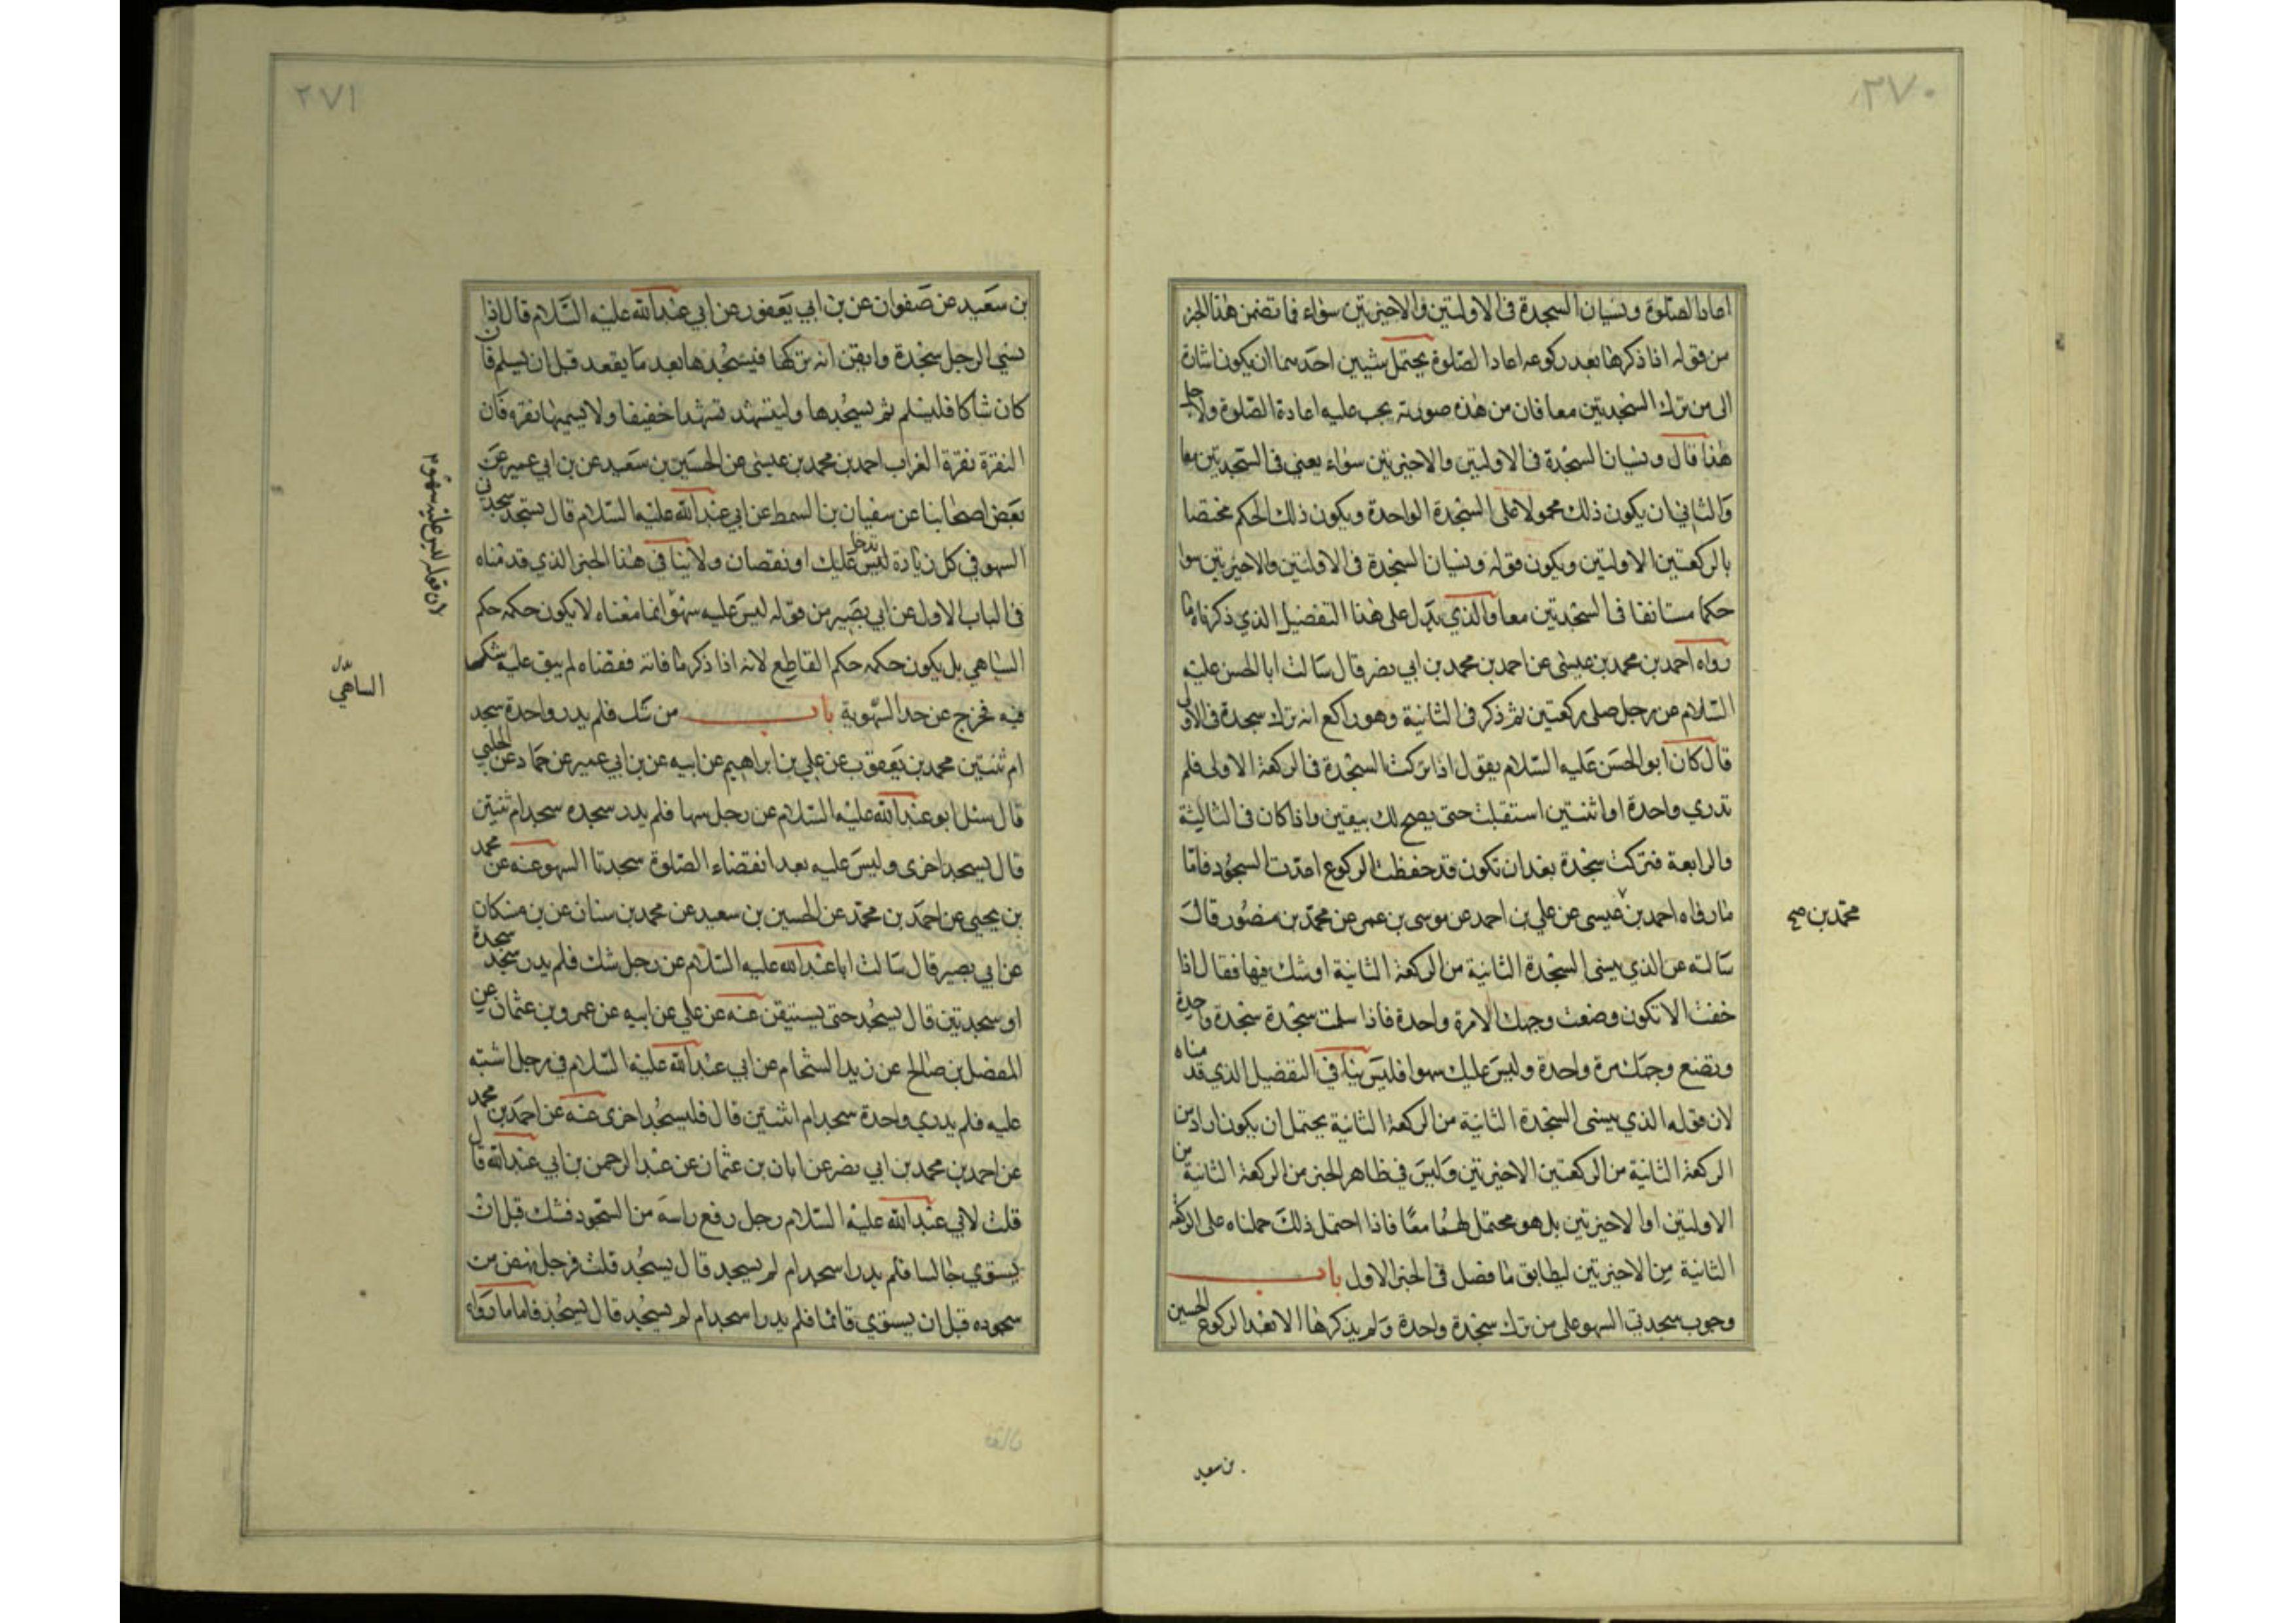 ٢٧٠
اعاد الصلوة ونسيان السجدة في الاولتين والاخيرتين سواء فما تضمن هذا الخبر
من قوله اذا ذكرها بعد ركوعه اعاد الصلوة يحتمل شيئين احدهما ان يكون اشارة
الى من ترك السجدتين معا فان من هذه صورته يجب عليه اعادة الصلوة ولاجل
هذا قال ونسيان السجدة في الاولتين والاخيرتين سواء يعني في السجدتين معا
والثاني ان يكون ذلك محمولا على السجدة الواحدة ويكون ذلك الحكم مختصا
بالركعتين الاولتين ويكون قوله ونسيان السجدة في الاولتين والاخيرتين سوا
حكما مستانفا في السجدتين معا والذي يدل على هذا التفضيل الذي ذكرناه ما
رواه احمد بن محمد بن عيسى عن احمد بن محمد بن ابي نصر قال سالت ابا الحسن عليه
السلام عن رجل صلى ركعتين ثم ذكر في الثانية وهو راكع انه ترك سجدة في الاولى
قال كان ابو الحسن عليه السلام يقول اذا تركت السجدة في الركعة الاولى فلم
تدري واحدة او اثنتين استقبلت حتى يصح لك بيقين واذا كان في الثاليثة
والرابعة فتركت سجدة بعد ان تكون قد حفظت الركوع اعدت السجود فاما
ما رواه احمد بن عيسى عن علي بن احمد عن موسى بن عمر عن محمد بن منصور قال
محمد بن صح
سالته عن الذي ينسى السجدة الثانية من الركعة الثانية او شك فيها فقال اذا
خفت الا تكون وضعت وجهك الا مرة واحدة فاذا سلمت سجدة سجدة واحدة
وتضع وجهك مرة واحدة وليس عليك سهو فليس ينافي التفضيل الذي قدمناه
لان قوله الذي ينسى السجدة الثانية من الركعة الثانية يحتمل ان يكون اراد من
الركعة الثانية من الركعتين الاخيرتين وليس في ظاهر الخبر من الركعة الثانية من
الاولتين او الاخيرتين بل هو محتمل لهما معا فاذا احتمل ذلك حملناه على الركعة
الثانية من الاخيرتين ليطابق ما فصل في الخبر الاول باب
وجوب سجدتي السهو على من ترك سجدة واحدة ولم يذكرها الا بعد الركوع الحسين
بن سعيد
٢٧١
بن سعيد عن صفوان عن بن ابي يعفور عن ابي عبد الله عليه السلام قال اذا
نسي الرجل سجدة وايقن انه تركها فليسجدها بعد ما يقعد قبل ان يسلم فان
كان شاكا فليسلم ثم يسجدها وليتشهد تشهدا خفيفا ولا يسميها نقرة فان
النقرة نقرة الغراب احمد بن محمد بن عيسى عن الحسين بن سعيد عن بن ابي عمير عن
بعض اصحابنا عن سفيان بن السمط عن ابي عبد الله عليه السلام قال تسجد سجدتي
السهو في كل زيادة تدخل عليك او نقصان ولا ينافي هذا الخبر الذي قدمناه
لان قوله ليس عليه سهو
في الباب الاول عن ابي بصير من قوله ليس عليه سهو انما معناه لا يكون حكمه حكم
الساهي بل يكون حكمه حكم القاطع لانه اذا ذكر ما فاته فقضاه لم يبق عليه شك
الساهي بدل
فيه فخرج عن حد السهوية باب من شك فلم يدر واحدة سجد
ام ثنتين محمد بن يعقوب عن علي بن ابراهيم عن ابيه عن بن ابي عمير عن حماد عن الحلبي
قال سئل ابو عبد الله عليه السلام عن رجل سها فلم يدر سجده سجد ام ثنتين
قال يسجد اخرى وليس عليه بعد انقضاء الصلوة سجدتا السهو عنه عن محمد
بن يحيى عن احمد بن محمد عن الحسين بن سعيد عن محمد بن سنان عن بن مسكان
عن ابي بصير قال سالت ابا عبد الله عليه السلام عن رجل شك فلم يدر سجد سجدة
او سجدتين قال يسجد حتى يستيقن عنه عن علي عن ابيه عن عمرو بن عثمان عن
المفضل بن صالح عن زيد الشحام عن ابي عبد الله عليه السلام في رجل اشتبه
عليه فلم يدري واحدة سجد ام اثنتين قال فليسجد اخرى عنه عن احمد بن محمد
عن احمد بن محمد بن ابي نصر عن ابان بن عثمان عن عبد الرحمن بن ابي عبد الله قال
قلت لابي عبد الله عليه السلام رجل رفع راسه من السجود فشك قبل ان
يستوي جالسا فلم يدر اسجد ام لم يسجد قال يسجد قلت فرجل نهض من
سجوده قبل ان يستوي قائما فلم يدر اسجد ام لم يسجد قال يسجد فاما ما رواه